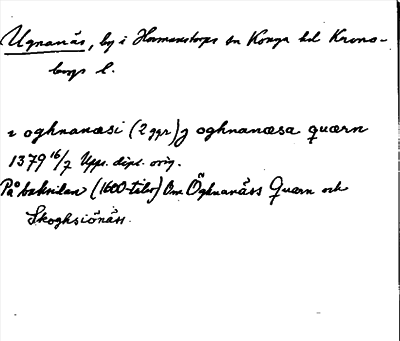 Ugnanäs, by i Hormanstorps sn Konga hd Krono-
bergs l.
i oghnanæsi (2 ggr) j oghnanæsa quærn
1379 16/7 Upps. dipl. orig.
På baksidan (1600-talet) Om Öghnanäss Quærn och
Skoghsiönäss.